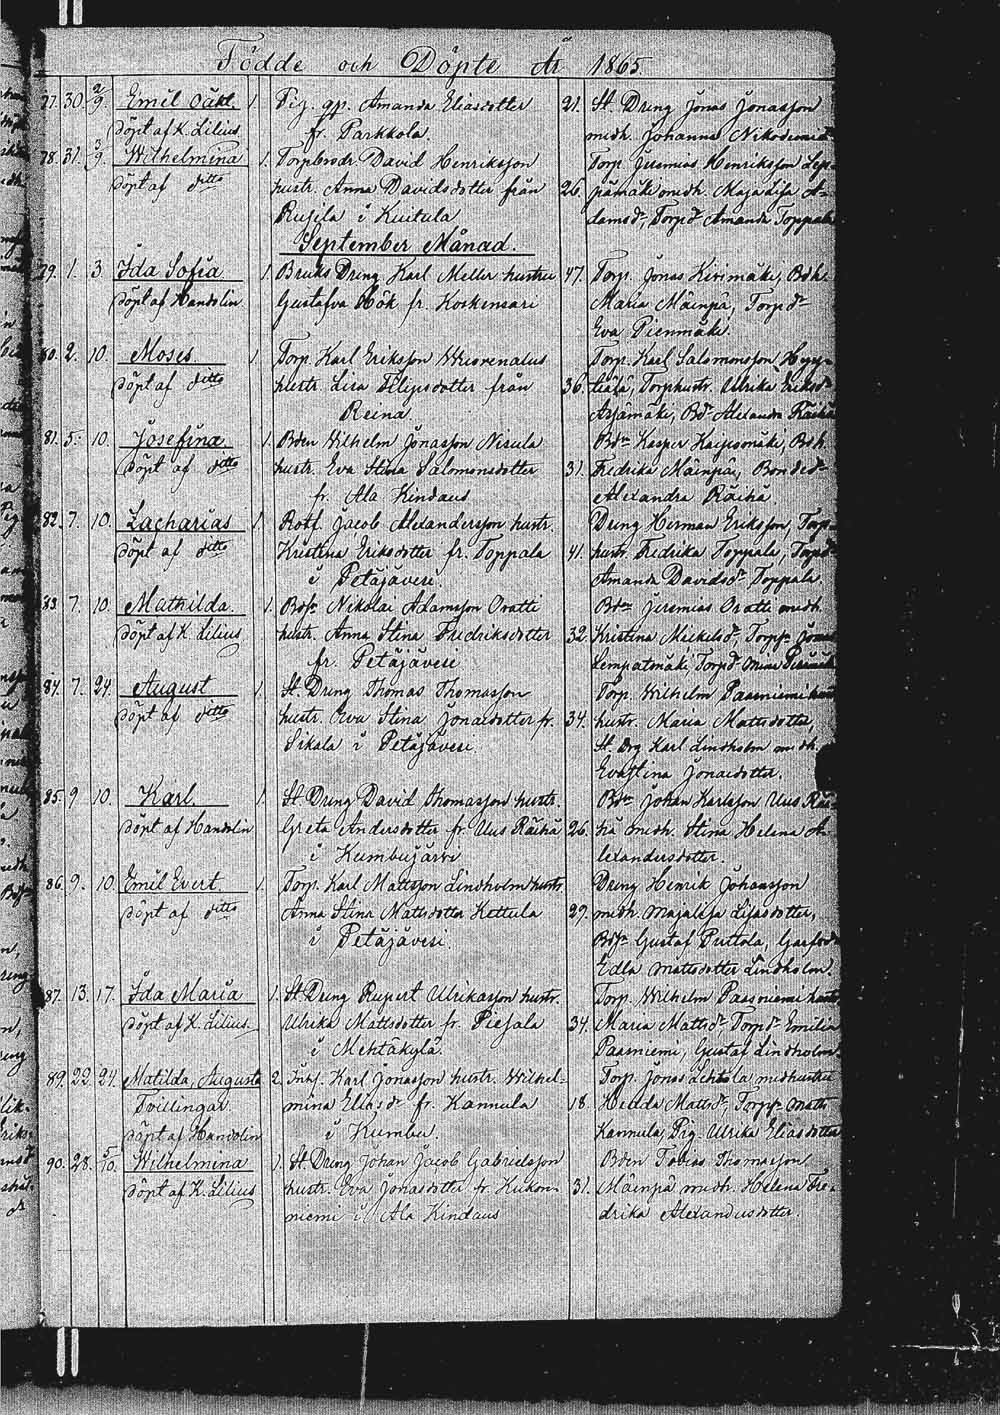 Födde och Döpte År 1865.
77. 30. 2/9. Emil oäkt. 1. Pig. gp. Amanda Eliasdotter 21. St. Dreng Jonas Jonasson
döpt af K. Lilius fr. Parkkola. medh. Johanna
78. 31. 3/9. Wilhelmina 1. Torpbrodr David Henriksson Torp. Jeremias Henriksson
döpt af ditto hustr. Anna Davidsdotter från 26. medh. Maja Lisa A-
i Kuitula damsdr, Torpdr Amanda Toppala
September Månad.
79. 1. 3 Ida Sofia 1. Bruks Dreng Karl Meller hustru 47. Torp. Jonas Kirimäki, Bdh.
döpt af Handolin Gustafva Hök fr. Koskensari Maria Mäinpä, Torpdr
Eva Pienmäki.
80. 2. 10. Moses 1 Torp. Karl Eriksson Wuorenalus Torp. Karl Salomonsson Hyy-
döpt af ditto hustr. Lisa Filipsdotter från 36. Torphustr. Ulrika Eriksdr
Reina. Bdr Alexandra Räihä
81. 5. 10. Josefina. 1. Bden Wilhelm Jonasson Nisula Bdn Kasper Bdh.
döpt af ditto hustr. Eva Stina Salomonsdotter 31. Fredrika Mäinpä, Bondedr
fr. Ala Kindaus Alexandra Räihä.
82. 7. 10. Zacharias 1. Rotf. Jacob Alexandersson hustr. Dreng Herman Eriksson, Torp-
döpt af ditto Kristina Eriksdotter fr. Toppala 41. hustr. Fredrika Toppala, Torpdr
i Petäjävesi. Amanda Davidsdr Toppala.
83. 7. 10. Mathilda. 1. Bdsn Nikolai Adamsson Oratti Bdn Jeremias Oratti medh.
döpt af K. Lilius hustr. Anna Stina Fredriksdotter 32. Kristina Mickelsdr, Torpsn
fr. Petäjävesi Lempatmäki, Torpdr Mina
84. 7. 24. August 1. St. Dreng Thomas Thomasson Torp. Wilhelm Paasniemi
döpt af ditto hustr. Eva Stina Jonaedotter fr. 34. hustr. Maria Mattsdotter,
Sikala i Petäjävesi. St. Drg Karl Lindholm medh.
Evastina Jonaedotter.
85. 9 10. Karl. 1. St Dreng David Thomasson hustr. Bdn Johan Karlsson Uus Räi-
döpt af Handolin Greta Andersdotter fr. Uus Räihä 26. hä medh. Stina Helena A-
i Kumbujärvi lexandersdotter.
86. 9. 10 Emil Evert. 1. Torp. Karl Mattsson Lindholm hustr. Dreng Henrik Johansson
döpt af ditto Anna Stina Mattsdotter Kettula 27. medh. Majalisa Lisasdotter,
i Petäjävesi. Bdsn Gustaf Puttola,
Edla Mattsdotter Lindholm.
87. 13. 17. Ida Maria 1. St Dreng Rupert Ulriksson hustr. Torp. Wilhelm Paasniemi hustr.
döpt af K. Lilius. Ulrika Mattsdotter fr. Piesala 34. Maria Mattsdr Torpdr Emilia
i Mehtäkylä. Paasniemi, Gustaf Lindholm.
89. 22. 24. Matilda, Augusta 2. Inhs. Karl Jonasson hustr. Wilhel- Torp. Jonas Lehtola med hustru
Tvillingar. mina Eliasdr fr. Kannula 18. Hedda Mattsdr, Torpsn Matts
Döpt af Handolin i Kumbu. Kannula, Pig. Ulrika Eliasdotter
90. 28. 5/10. Wilhelmina 1. St. Dreng Johan Jacob Gabrielsson Bden Tobias Thomasson
döpt af K. Lilius hustr. Eva Jonasdotter fr. Kukon- 31. Mäinpä medh. Helena Fre-
niemi i Ala Kindaus drika Alexandersdotter.